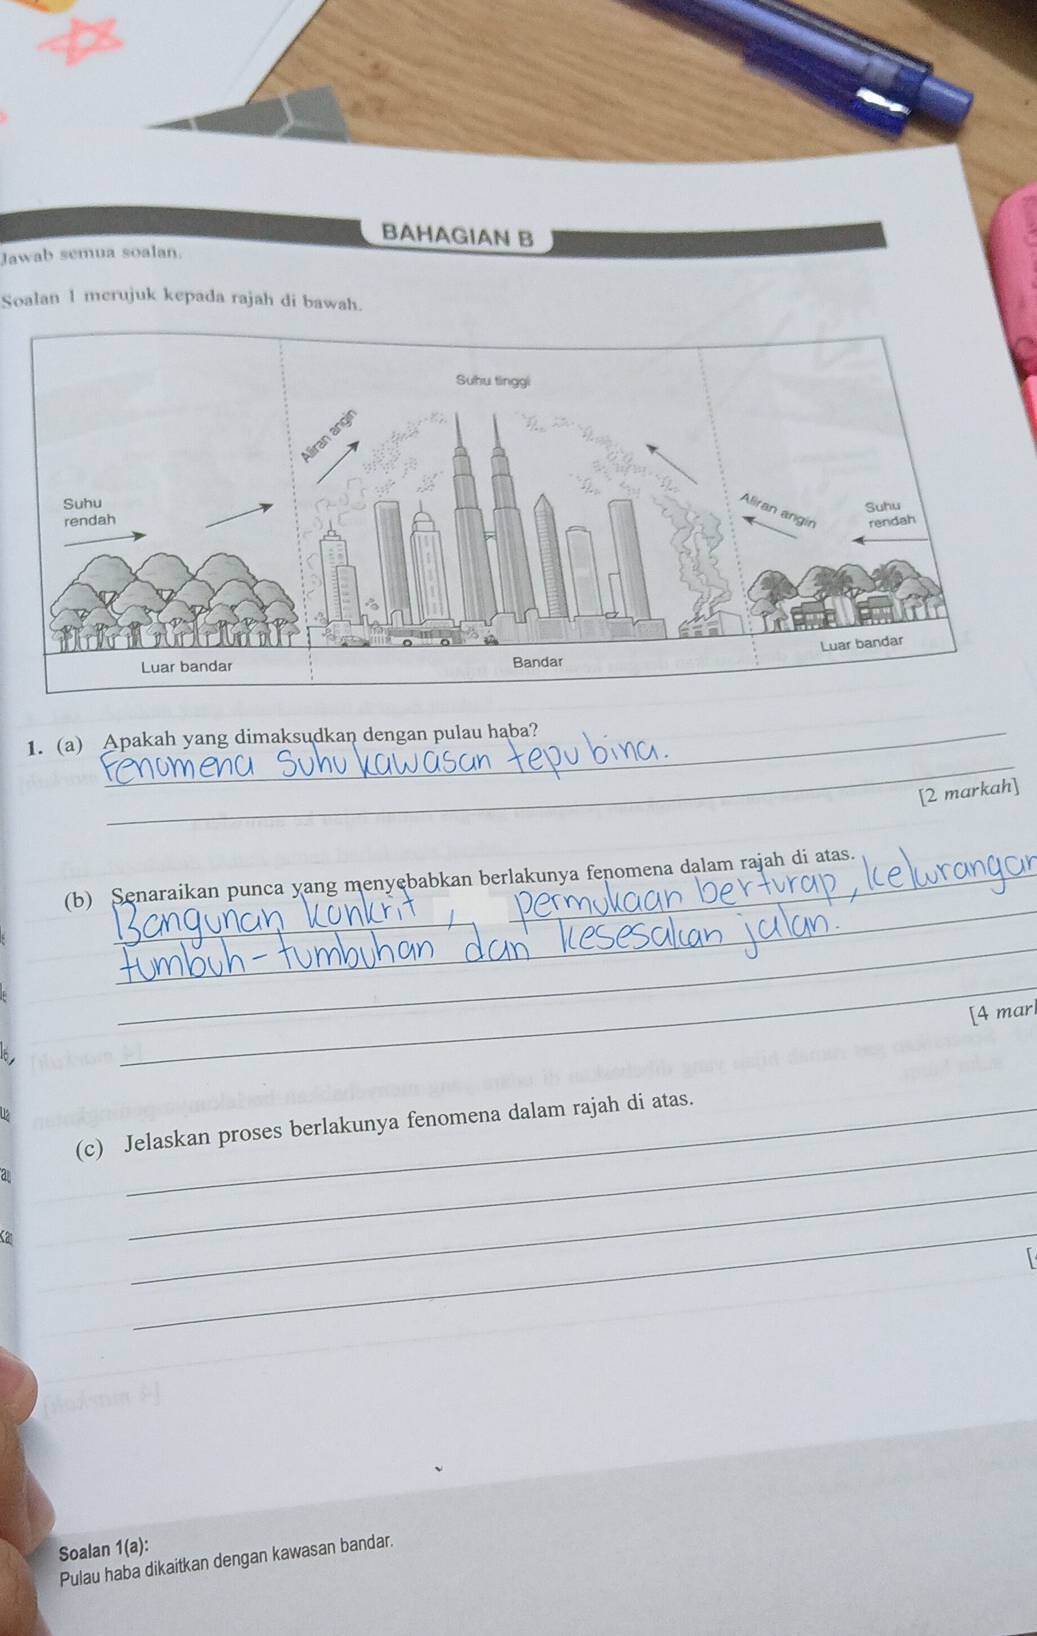 BAHAGIAN B
Jawab semua soalan.
Soalan 1 merujuk kepada rajah di bawah.
Suhu tinggi
Aliran angin
Suhu
rendah
Aliran angin
Suhu
rendah
Luar bandar
Bandar
Luar bandar
1. (a) Apakah yang dimaksudkan dengan pulau haba?
Fenomena suhu kawasan tepu bina.
[2 markah]
(b) Senaraikan punca yang menyebabkan berlakunya fenomena dalam rajah di atas.
Bangunan konkrit, permukaan berturap, kekurangan
tumbuh-tumbuhan dan kesesakan jalan.
[4 mar
(c) Jelaskan proses berlakunya fenomena dalam rajah di atas.
Soalan 1(a):
Pulau haba dikaitkan dengan kawasan bandar.